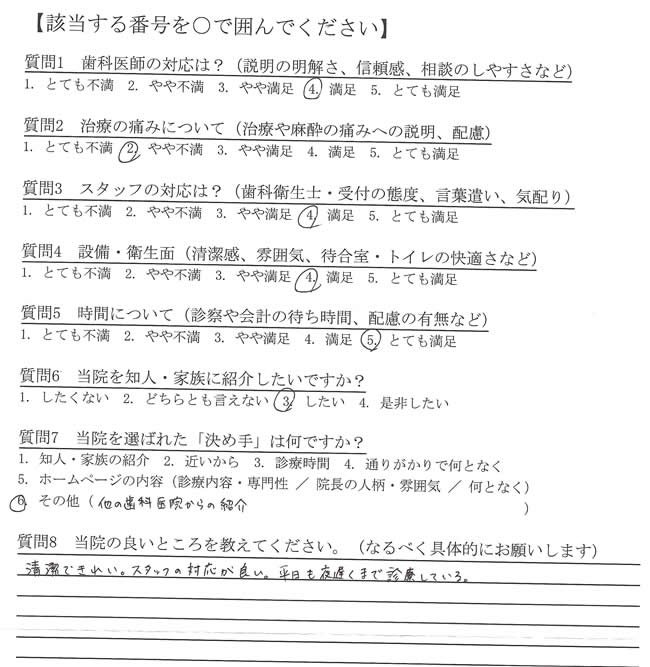 【該当する番号を○で囲んでください】
質問1 歯科医師の対応は?(説明の明解さ、信頼感、相談のしやすさなど)
1. とても不満 2. やや不満 3. やや満足 4. 満足 5. とても満足
質問2 治療の痛みについて(治療や麻酔の痛みへの説明、配慮)
1. とても不満 2. やや不満 3. やや満足 4. 満足 5. とても満足
質問3 スタッフの対応は?(歯科衛生士・受付の態度、言葉遣い、気配り)
1. とても不満 2. やや不満 3. やや満足 4. 満足 5. とても満足
質問4 設備・衛生面(清潔感、雰囲気、待合室・トイレの快適さなど)
1. とても不満 2. やや不満 3. やや満足 4. 満足 5. とても満足
質問5 時間について(診察や会計の待ち時間、配慮の有無など)
1. とても不満 2. やや不満 3. やや満足 4. 満足 5. とても満足
質問6 当院を知人・家族に紹介したいですか?
1. したくない 2. どちらとも言えない 3. したい 4. 是非したい
質問7 当院を選ばれた「決め手」は何ですか?
1. 知人・家族の紹介 2. 近いから 3. 診療時間 4. 通りがかりで何となく
5. ホームページの内容(診療内容・専門性 / 院長の人柄・雰囲気 / 何となく)
6. その他(他の歯科医院からの紹介)
質問8 当院の良いところを教えてください。(なるべく具体的にお願いします)
清潔できれい。スタッフの対応が良い。平日も夜遅くまで診療している。